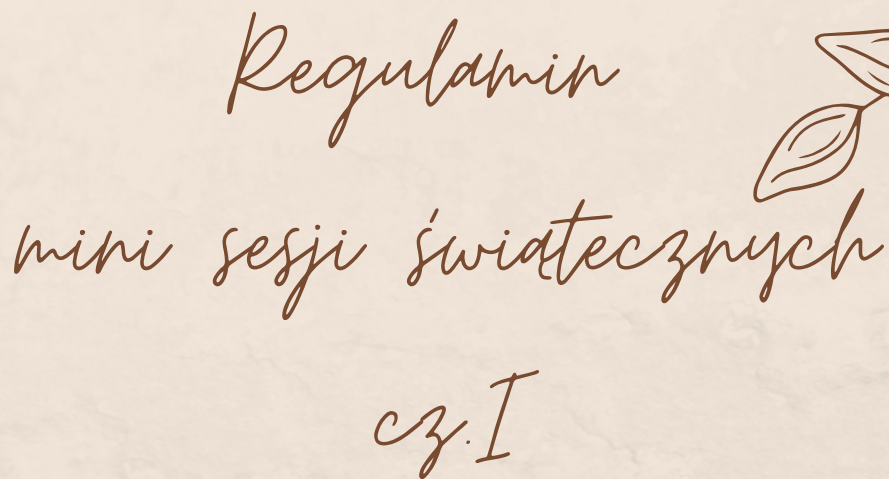 Regulamin
mini sesji świątecznych
cz.I